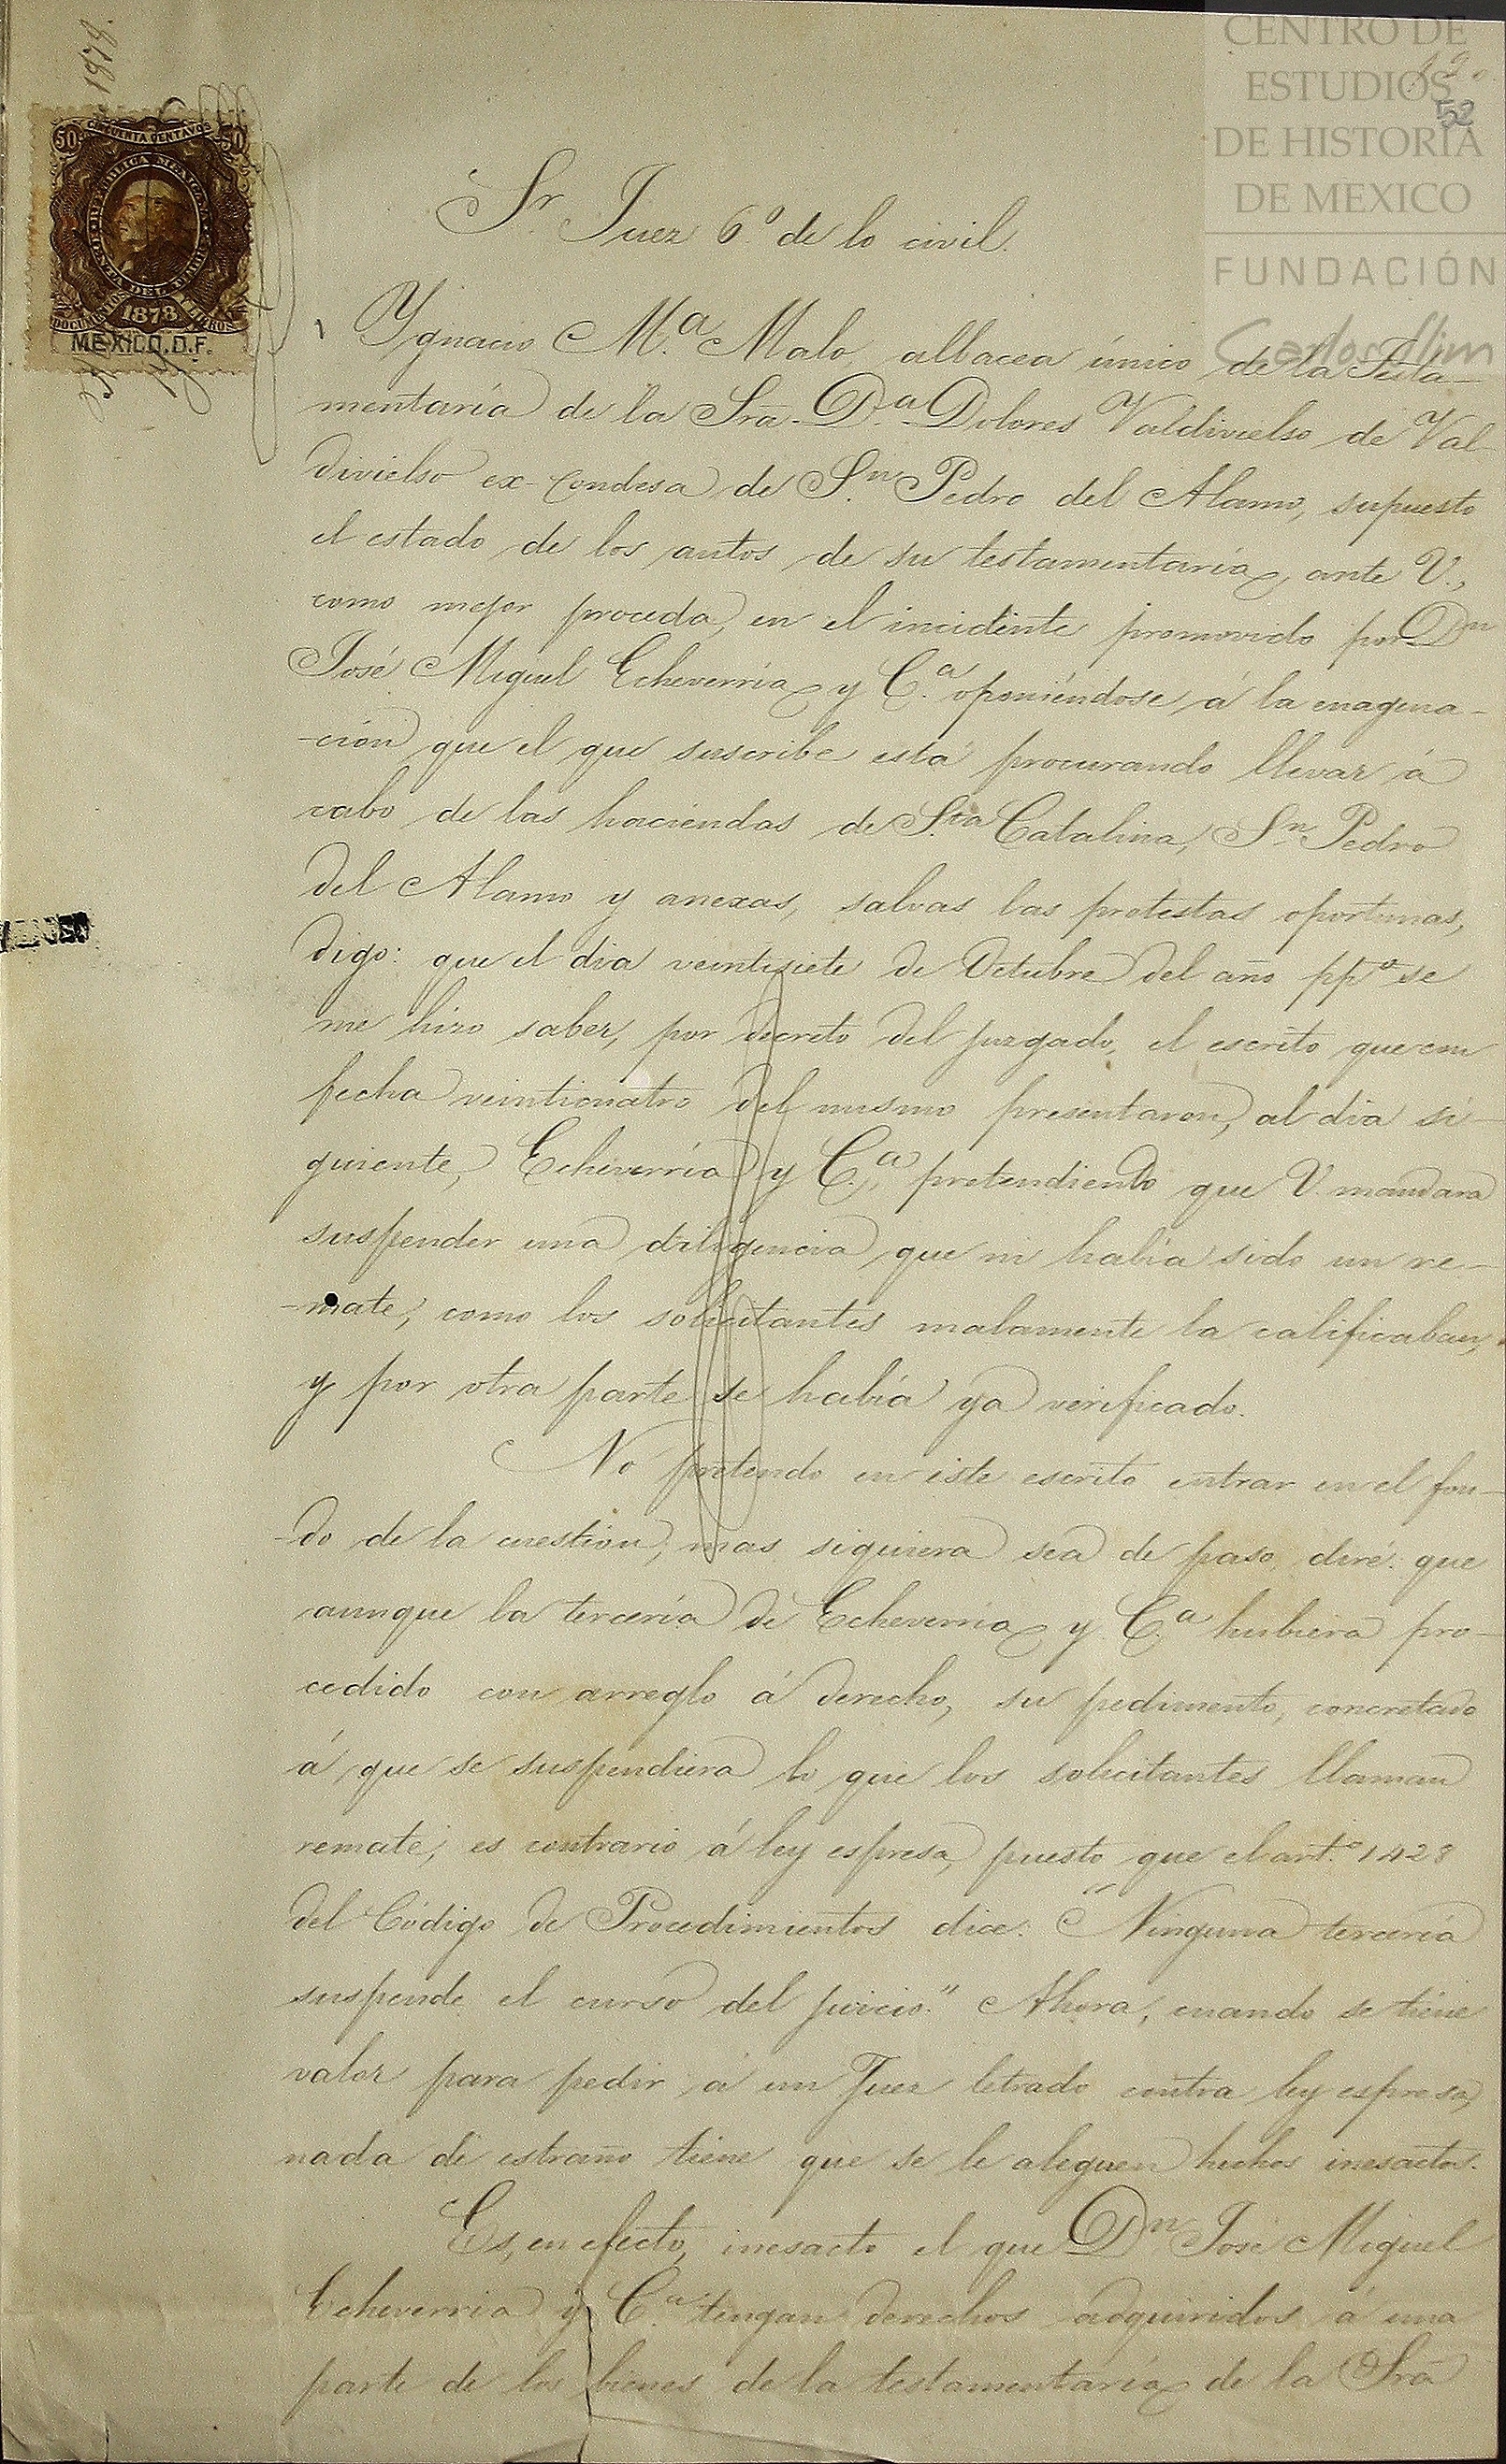 1878.
50 CINCUENTA CENTAVOS 50
REPUBLICA MEXICANA
RENTA DEL TIMBRE
DOCUMENTOS Y LIBROS
1878
MEXICO. D.F.
CENTRO DE
ESTUDIOS
DE HISTORIA
DE MEXICO
FUNDACIÓN
Carlos Slim
52
Sr. Juez 6.º de lo civil.
Ygnacio M.ª Malo, albacea único de la Testa-
mentaría de la Sra. D.ª Dolores Valdivielso de Val-
divielso ex-Condesa de S.n Pedro del Alamo, supuesto
el estado de los autos de su testamentaría, ante V.,
como mejor proceda, en el incidente promovido por Dn
José Miguel Echeverría y C.ª oponiéndose á la enagena-
-ción que el que suscribe está procurando llevar á
cabo de las haciendas de S.ta Catalina, Sn Pedro
del Alamo y anexas, salvas las protestas oportunas,
digo: que el dia veintisiete de Octubre del año ppº se
me hizo saber, por decreto del juzgado, el escrito que con
fecha veinticuatro del mismo presentaron, al dia si-
guiente, Echeverría y C.ª, pretendiendo que V. mandara
suspender una diligencia que ni habia sido un re-
-mate, como los solicitantes malamente la calificaban,
y por otra parte se había ya verificado.
No pretendo en este escrito entrar en el fon-
-do de la cuestion, mas siquiera sea de paso diré: que
aunque la tercería de Echeverría y C.ª hubiera pro-
cedido con arreglo á derecho, su pedimento, concretado
á que se suspendiera lo que los solicitantes llaman
remate, es contrario á ley espresa, puesto que el art.º 1428
del Código de Procedimientos dice: "Ninguna tercería
suspende el curso del juicio." Ahora, cuando se tiene
valor para pedir á un Juez letrado contra ley espresa,
nada de estraño tiene que se le aleguen hechos inesactos.
Es, en efecto, inesacto el que Dn José Miguel
Echeverria y C.ª tengan derechos adquiridos á una
parte de los bienes de la testamentaría de la Sra